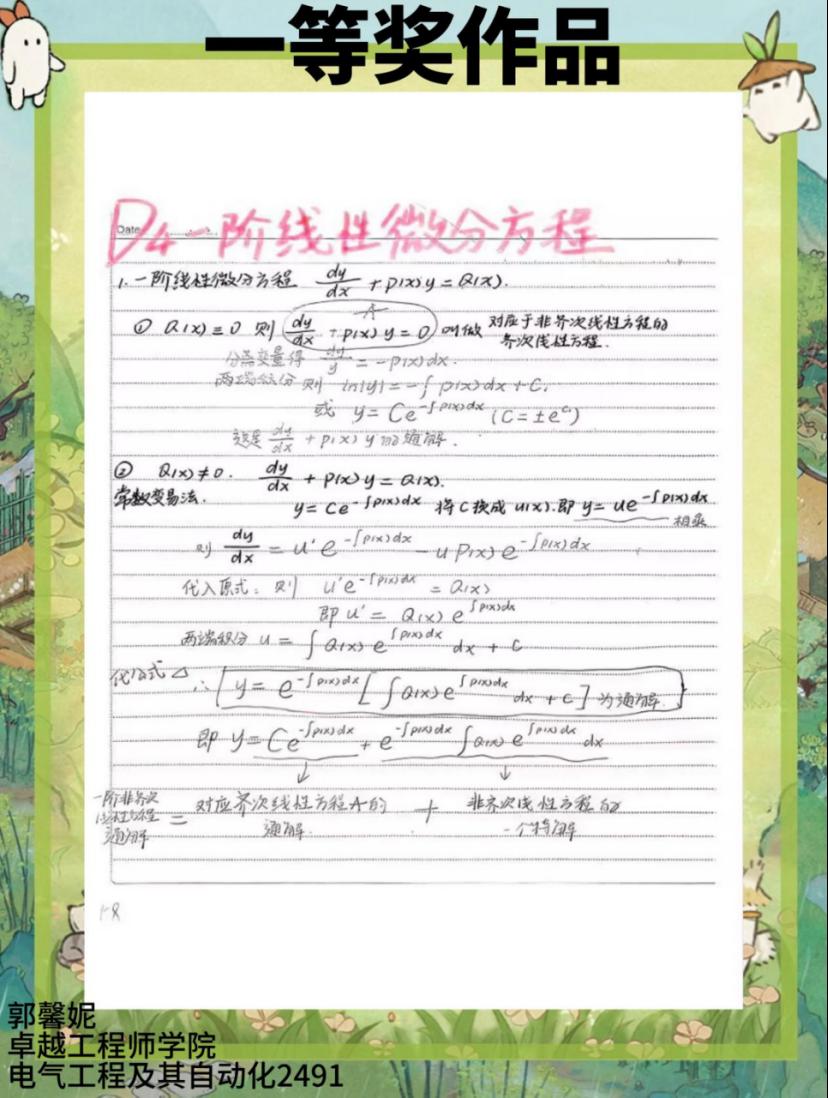 一等奖作品
Date
D4 一阶线性微分方程
1. 一阶线性微分方程 dy/dx + P(x)y = Q(x).
① Q(x) ≡ 0 则 dy/dx + P(x)y = 0 叫做 对应于非齐次线性方程的
齐次线性方程.
分离变量得 dy/y = -P(x)dx.
两端积分 则 ln|y| = -∫P(x)dx + C₁
或 y = Ce^{-∫P(x)dx} (C = ±e^{C₁})
这是 dy/dx + P(x)y 的通解.
② Q(x) ≠ 0. dy/dx + P(x)y = Q(x).
常数变易法. y = Ce^{-∫P(x)dx} 将C换成u(x).即 y = ue^{-∫P(x)dx}
相乘
则 dy/dx = u'e^{-∫P(x)dx} - uP(x)e^{-∫P(x)dx}
代入原式: 则 u'e^{-∫P(x)dx} = Q(x)
即 u' = Q(x)e^{∫P(x)dx}
两端积分 u = ∫Q(x)e^{∫P(x)dx} dx + C
代入式△ ∴ [y = e^{-∫P(x)dx}[∫Q(x)e^{∫P(x)dx} dx + C] 为通解.
即 y = Ce^{-∫P(x)dx} + e^{-∫P(x)dx}∫Q(x)e^{∫P(x)dx}dx
↓ ↓
一阶非齐次线性方程通解 = 对应齐次线性方程A的通解. + 非齐次线性方程的一个特解
郭馨妮
卓越工程师学院
电气工程及其自动化2491